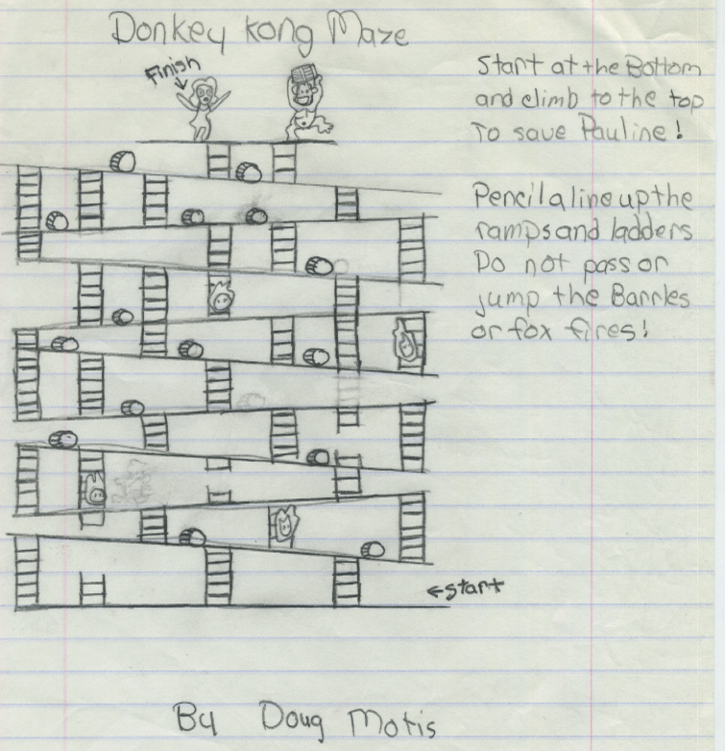 Donkey Kong Maze
Finish
Start at the Bottom
and climb to the top
To save Pauline!
Pencil a line up the
ramps and ladders
Do not pass or
jump the Barrles
or fox fires!
←start
By Doug Motis